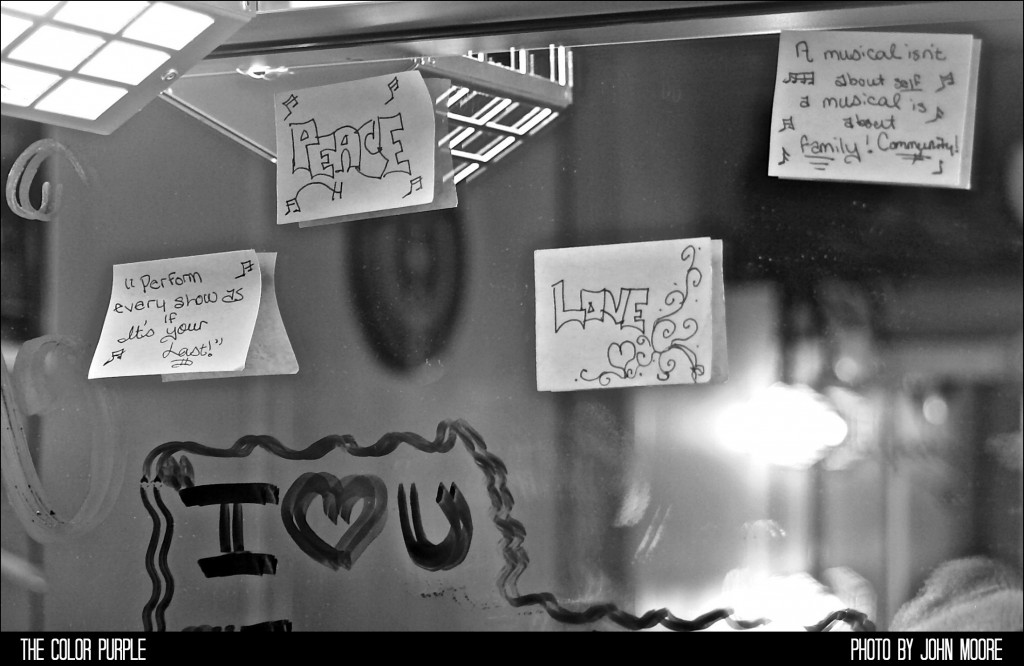 PEACE
A musical isn't
about self
a musical is
about
family! Community!
"Perform
every show as
if
It's your
Last!"
LOVE
I ♥ U
THE COLOR PURPLE
PHOTO BY JOHN MOORE